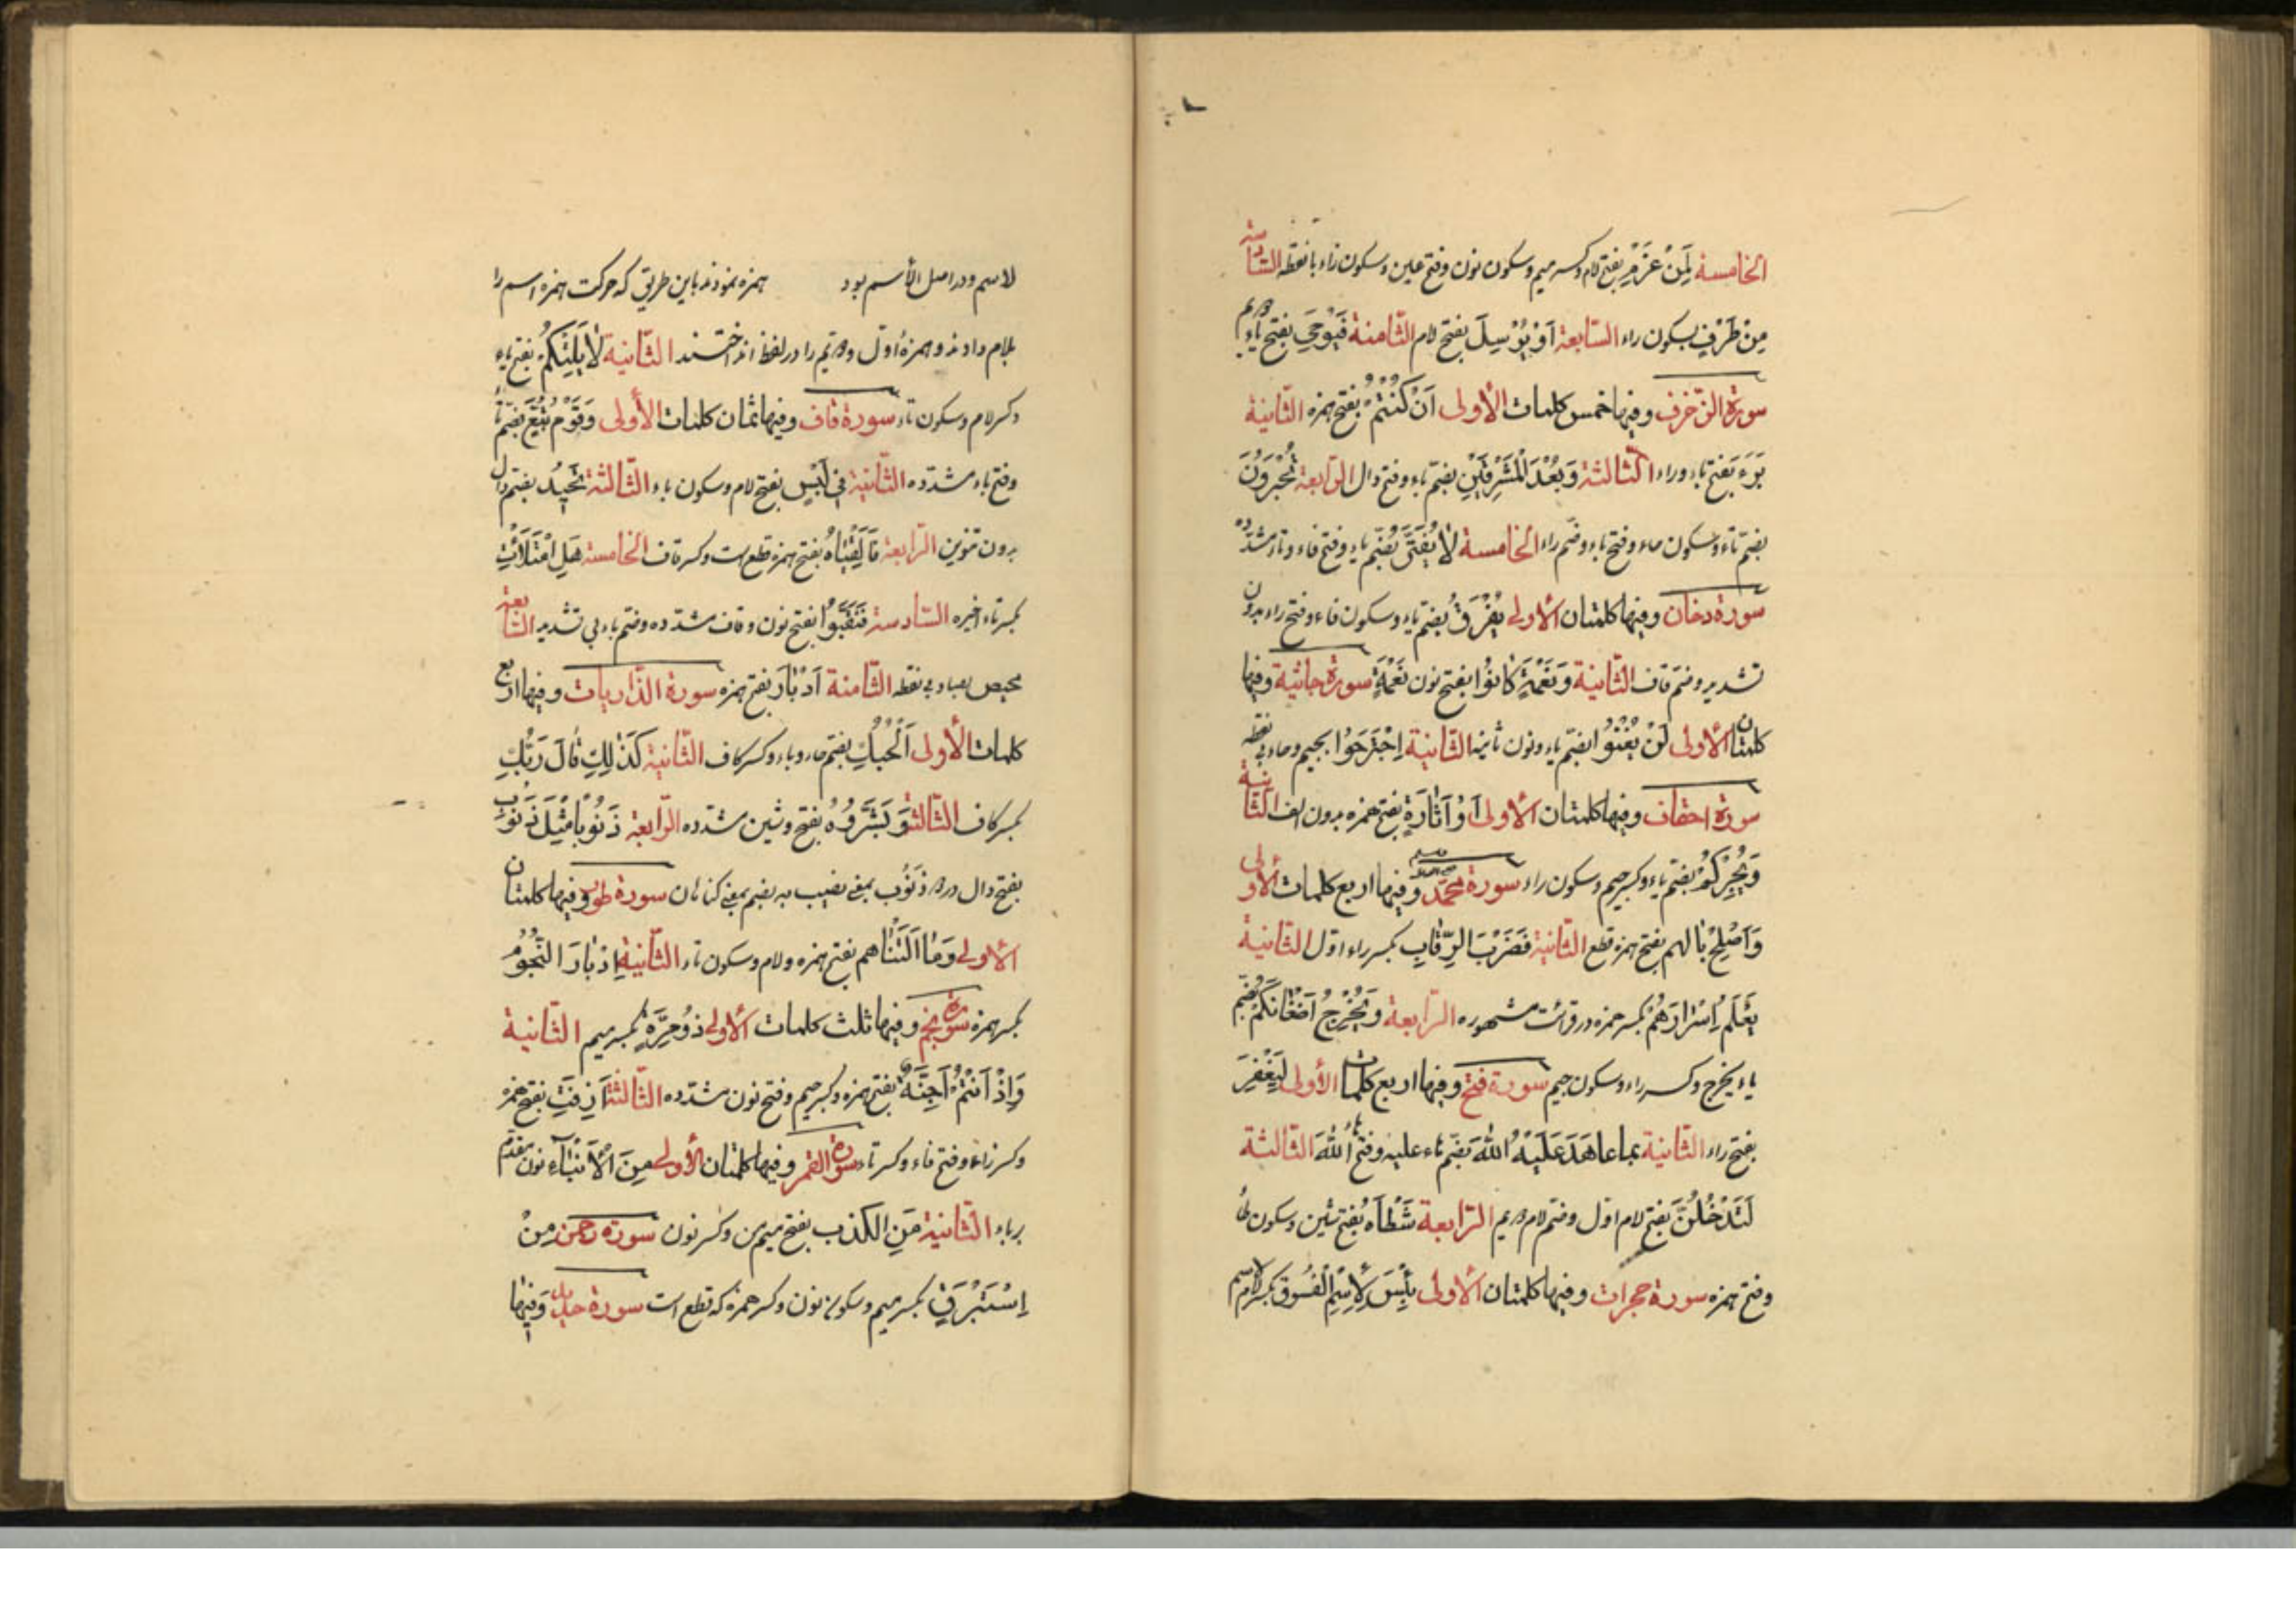 الخامسة لَمِنْ عَزْمِ بفتح لام وكسر ميم وسكون نون وفتح عين وسكون زاء با نقطه السّادسة
مِنْ طَرْفٍ بسكون راء السّابعة اَوْ يُرْسِلَ بفتح لام الثّامنة فَيُوحِيَ بفتح ياء دويم
سورة الزّخرف وفيها خمس كلمات الأولى اَنْ كُنْتُمْ بفتح همزه الثّانية
بفتح باء وراء الثّالثة وَبُعْدَ الْمَشْرِقَيْنِ بضمّ باء وفتح دال الرّابعة تُحْبَرُونَ
بضمّ تاء وسكون حاء وفتح باء وضمّ راء الخامسة لا يُفَتَّرُ بضمّ ياء وفتح فاء وتاء مشدّده
سورة دخان وفيها كلمتان الأولى يُفْرَقُ بضمّ ياء وسكون فاء وفتح راء بدون
تشديد وضمّ قاف الثّانية وَنَعْمَةٍ كانُوا بفتح نون نَعْمَةٍ سورة جاثية وفيها
كلمتان الأولى لَنْ يُغْنُوا بضمّ ياء ونون ثانيه الثّانية اِجْتَرَحُوا بجيم وحاء بي نقطه
سورة احقاف وفيها كلمتان الأولى اَوْ اَثارَةٍ بفتح همزه بدون الف الثّانية
وَيُجِرْكُمْ بضمّ ياء وكسر جيم وسكون راء سورة محمّد وفيها اربع كلمات الأولى
وَاَصْلَحَ بالهم بفتح همزه قطع الثّانية فَضَرْبَ الرِّقابِ بكسر راء اوّل الثّانية
يَعْلَمُ اِسْرارَهُمْ بكسر همزه در قرائت مشهوره الرّابعة وَيُخْرِجْ اَضْغانَكُمْ بضمّ
ياء يخرج وكسر راء وسكون جيم سورة فتح وفيها اربع كلمات الأولى لِيَغْفِرَ
بفتح راء الثّانية بما عاهَدَ عَلَيْهُ اللّهَ بضمّ هاء عليه وفتح اللّهَ الثّالثة
لَتَدْخُلُنَّ بفتح لام اوّل وضمّ لام دويم الرّابعة شَطْأَهُ بفتح شين وسكون طاء
وفتح همزه سورة حجرات وفيها كلمتان الأولى بِئْسَ لِاسْمُ الْفُسُوقُ بكسر لام
لاسم ودر اصل الأسم بود همزه نمودند باين طريق كه حركت همزه اسم را
بلام دادند وهمزه اوّل ودويم را در لفظ انداختند الثّانية لا يَلِتْكُمْ بفتح ياء
وكسر لام وسكون تاء سورة قاف وفيها ثمان كلمات الأولى وَقَوْمُ تُبَّعٍ بضمّ تاء
وفتح باء مشدّده الثّانية في لَبْسٍ بفتح لام وسكون باء الثّالثة تَحيدُ بضمّ دال
بدون تنوين الرّابعة فَأَلْقِياهُ بفتح همزه قطع است وكسر قاف الخامسة هَلِ امْتَلَأْتِ
بكسر تاء اخيره السّادسة فَنَقَّبُوا بفتح نون وقاف مشدّده وضمّ باء بي تشديد السّابعة
محيص بصاد بي نقطه الثّامنة اَدْبارَ بفتح همزه سورة الذّاريات وفيها اربع
كلمات الأولى اَلْحُبُكِ بضمّ حاء وباء وكسر كاف الثّانية كَذلِكِ قالَ رَبُّكِ
بكسر كاف الثّالثة وَبَشَّرُوهُ بفتح وشين مشدّده الرّابعة ذَنُوبًا مِثْلَ ذَنُوبِ
بفتح ذال در ذَنُوب بمعني نصيب به بضم بمعني كناهان سورة طور وفيها كلمتان
الأولى وَما اَلَتْناهم بفتح همزه ولام وسكون تاء الثّانية اِدْبارَ النّجُومِ
بكسر همزه سورة نجم وفيها ثلث كلمات الأولى ذُو مِرَّةٍ بكسر ميم الثّانية
وَاِذْ اَنْتُمْ اَجِنَّةٌ بفتح همزه وكسر جيم وفتح نون مشدّده الثّالثة اَزِفَتِ بفتح همزه
وكسر زاء وفتح فاء وكسر تاء سورة القمر وفيها كلمتان الأولى مِنَ الْاَنْباءِ نون مقدّم
بر باء الثّانية مَنِ الكذب بفتح ميم من وكسر نون سورة رحمن مِنْ
اِسْتَبْرَقٍ بكسر ميم وسكون نون وكسر همزه كه قطع است سورة حديد وَفيها